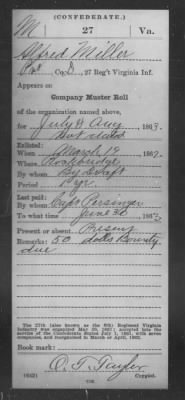 (CONFEDERATE.)
M 27 Va.
Alfred Miller
Pvt Co. D, 27 Reg't Virginia Inf.
Appears on
Company Muster Roll
of the organization named above,
for July & Aug, 1862.
not dated
Enlisted:
When March 19, 1862.
Where Rockbridge
By whom By draft
Period 1 yr.
Last paid:
By whom Capt Persinger
To what time June 30, 1862.
Present or absent Present
Remarks: 50 dolls Bounty
due
The 27th (also known as the 6th) Regiment Virginia
Infantry was organized May 30, 1861; accepted into the
service of the Confederate States July 1, 1861, with seven
companies, and reorganized in
Book mark:
(642)
Copyist.